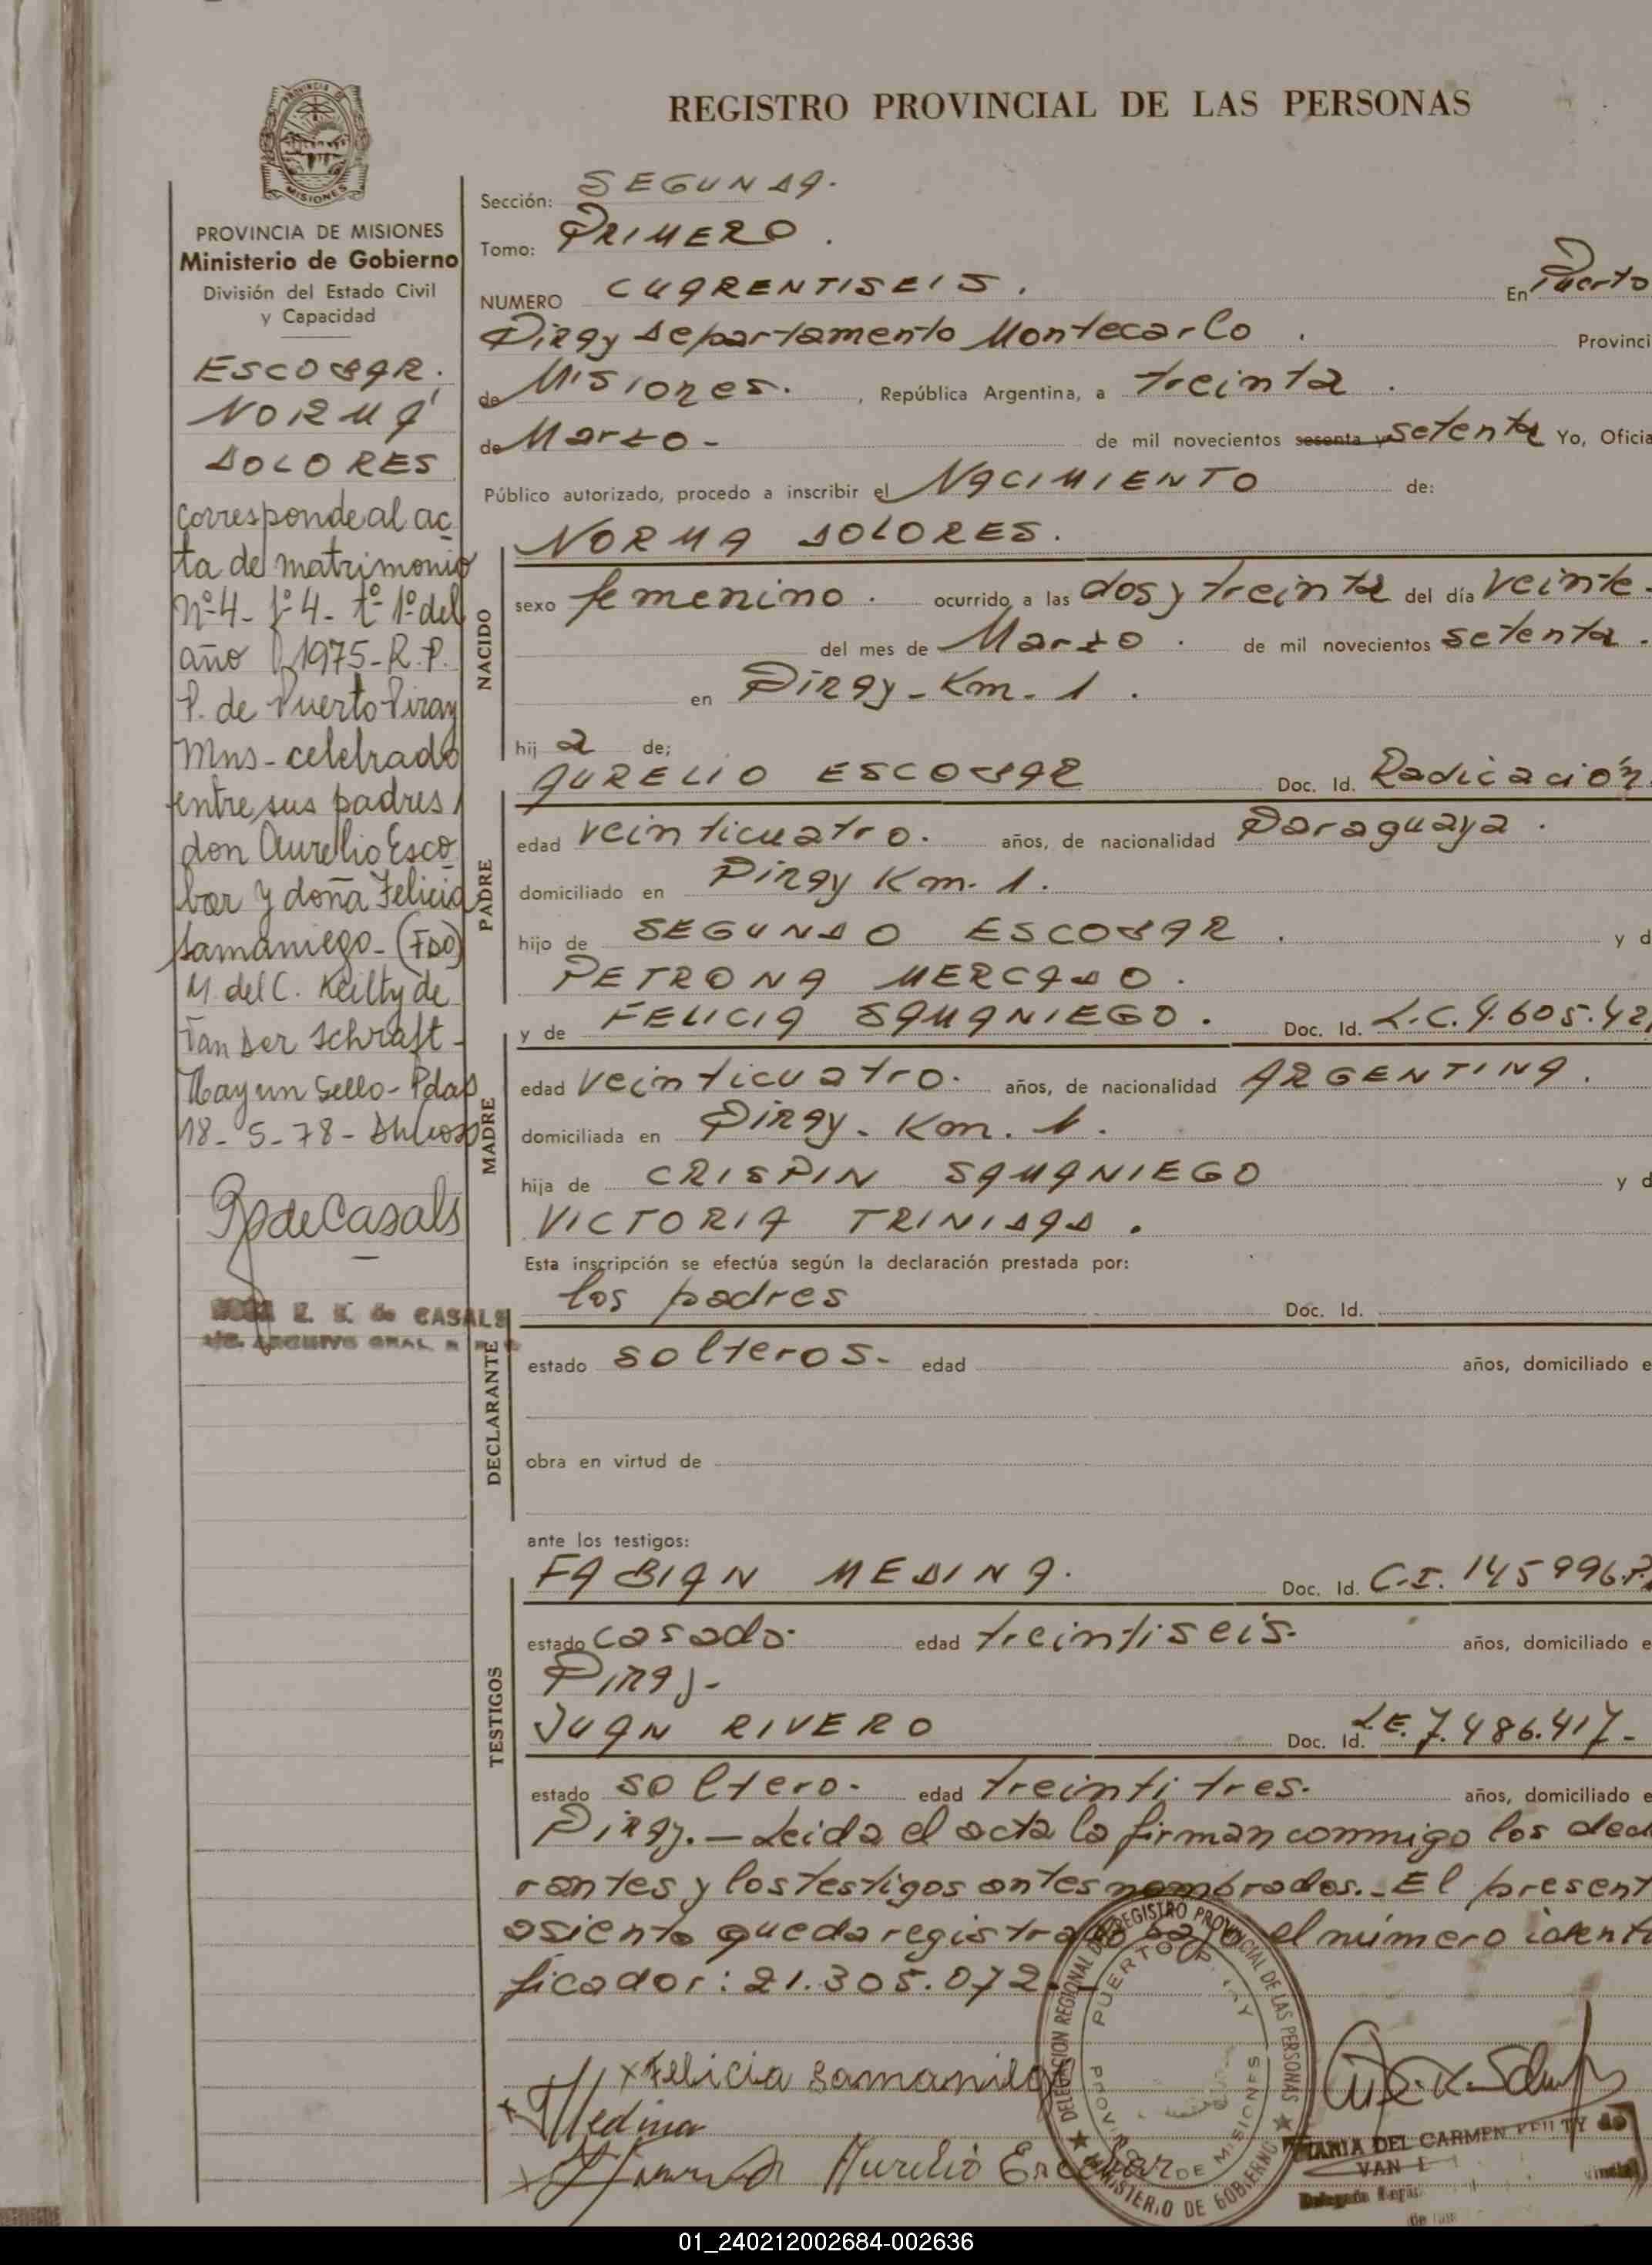 REGISTRO PROVINCIAL DE LAS PERSONAS
PROVINCIA DE
MISIONES
PROVINCIA DE MISIONES
Ministerio de Gobierno
División del Estado Civil
y Capacidad
ESCOBAR.
NORMA
DOLORES
corresponde al ac
ta de matrimonio
nº 4- fº 4- tº 1º del
año 1975- R.P.
P. de Puerto Piray
Mns- celebrado
entre sus padres
don Aurelio Esco
bar y doña Felicia
Samaniego- (FDO)
M. del C. Keilty de
Van Der Schraft-
Hay un Sello- Pdas
18-5-78-
R de Casals
de CASALS
ARCHIVO GRAL.
Sección: SEGUNDA.
Tomo: PRIMERO.
NUMERO CUARENTISEIS. En Puerto
Piray Departamento Montecarlo. Provinci
de Misiones. , República Argentina, a treinta.
de Marzo- de mil novecientos sesenta y setenta Yo, Oficia
Público autorizado, procedo a inscribir el NACIMIENTO de:
NACIDO
NORMA DOLORES.
sexo femenino. ocurrido a las dos y treinta del día veinte-
del mes de Marzo. de mil novecientos setenta.
en Piray-Km-1.
hij a de;
PADRE
AURELIO ESCOBAR Doc. Id. Radicación
edad veinticuatro. años, de nacionalidad Paraguaya.
domiciliado en Piray Km. 1.
hijo de SEGUNDO ESCOBAR. y d
PETRONA MERCADO.
MADRE
y de FELICIA SAMANIEGO. Doc. Id. L.C. 4.605.42
edad veinticuatro. años, de nacionalidad ARGENTINA.
domiciliada en Piray-Km. 1.
hija de CRISPIN SAMANIEGO y d
VICTORIA TRINIDAD.
Esta inscripción se efectúa según la declaración prestada por:
DECLARANTE
los padres Doc. Id.
estado solteros- edad años, domiciliado e
obra en virtud de
ante los testigos:
TESTIGOS
FABIAN MEDINA. Doc. Id. C.I. 145996
estado casado. edad treintiseis. años, domiciliado e
Piray-
JUAN RIVERO Doc. Id. L.E. 7.486.417-
estado soltero. edad treintitres. años, domiciliado e
Piray.- Leida el acta la firman conmigo los decl
rantes y los testigos antes nombrados.- El present
asiento queda registrado bajo el número identi
ficador: 21.305.072.-
x Felicia Samaniego
x Medina
Aurelio Escobar
DELEGACION REGIONAL DEL REGISTRO PROVINCIAL DE LAS PERSONAS
MINISTERIO DE GOBIERNO
PUERTO PIRAY
PROVINCIA DE MISIONES
MARIA DEL CARMEN KEILTY de
VAN
01_240212002684-002636